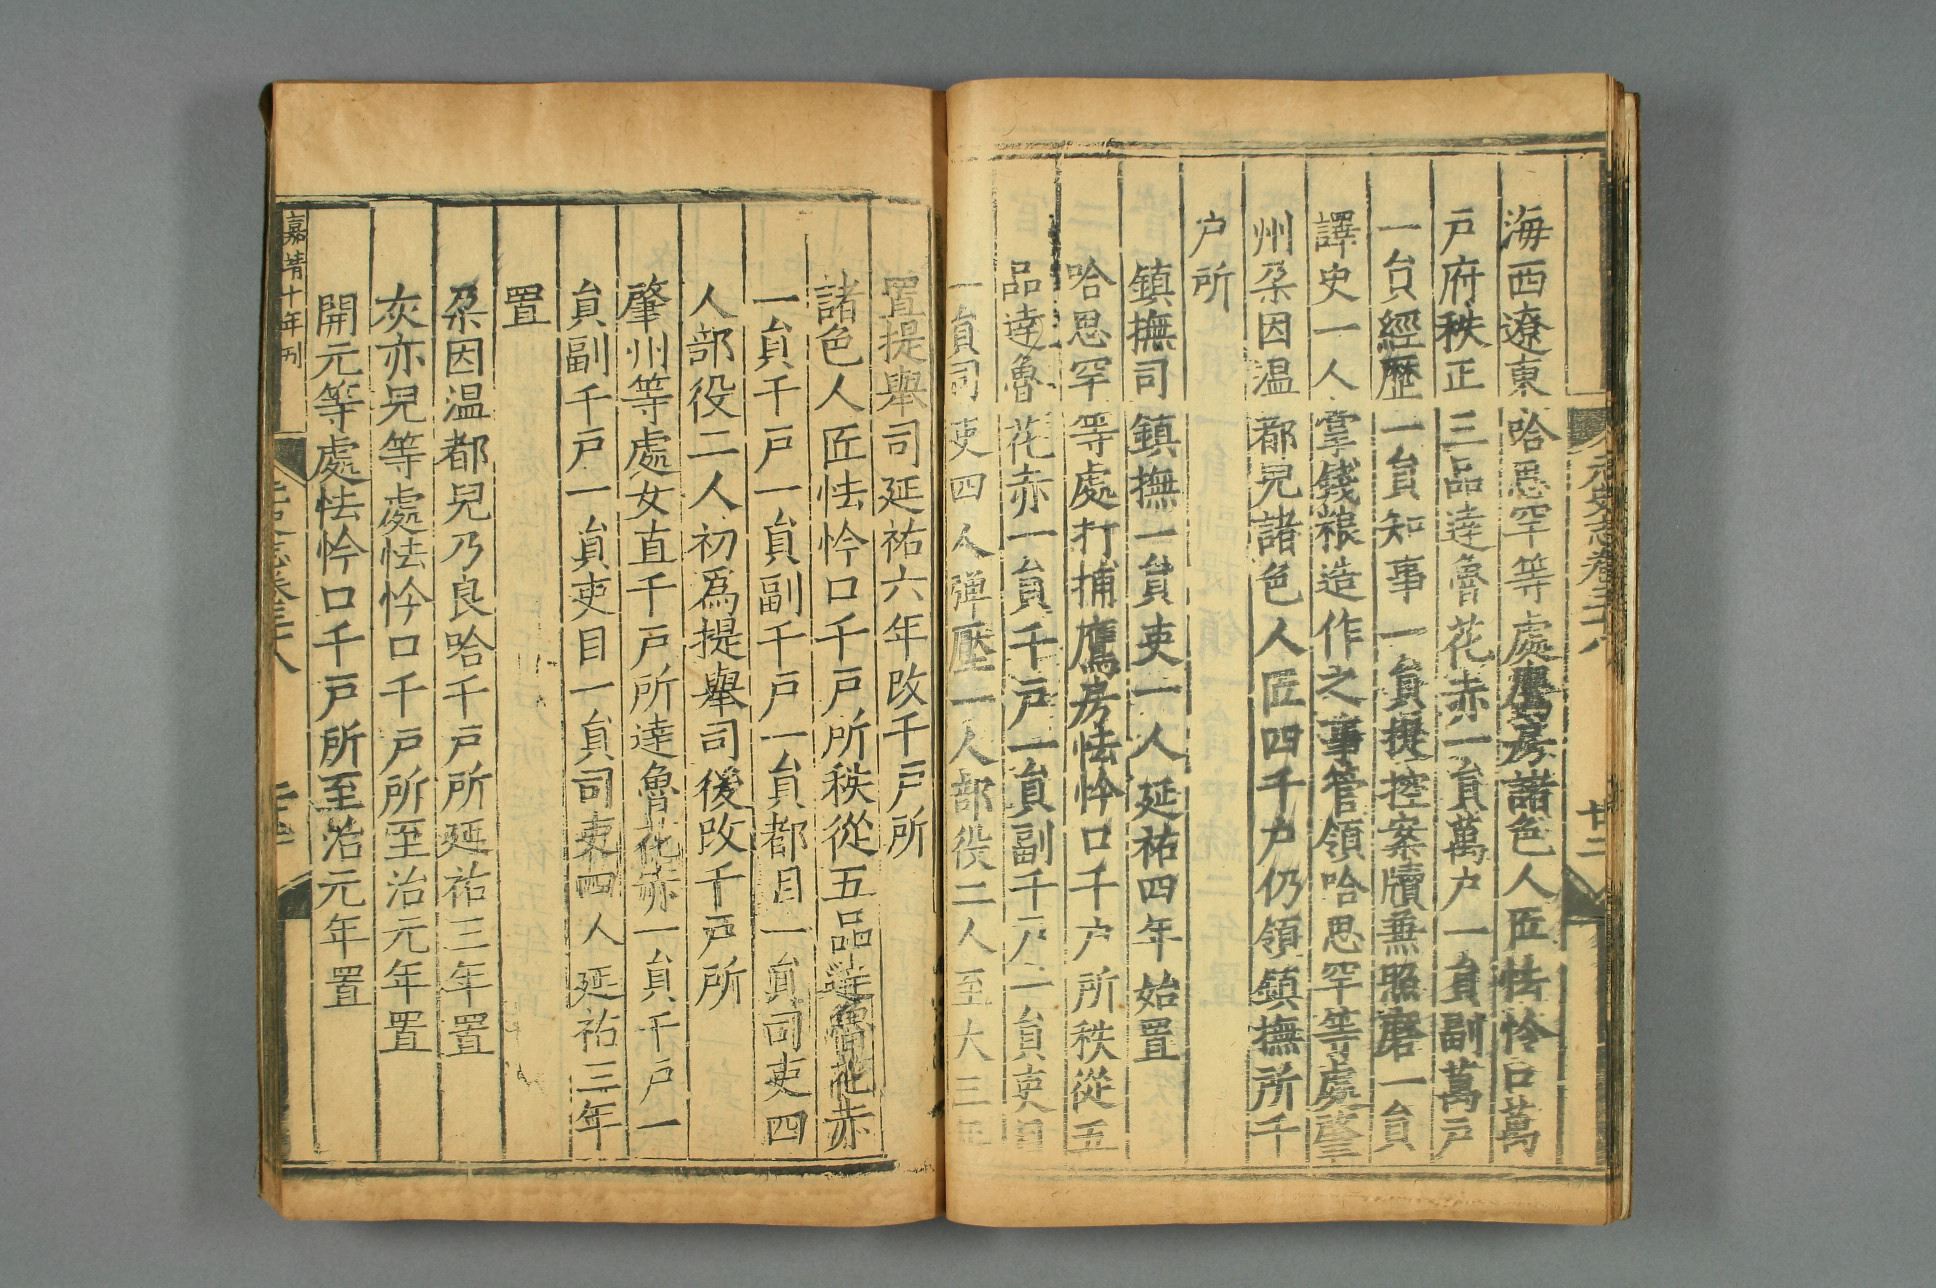 海西遼東哈思罕等處鷹房諸色人匠怯怜口萬
戶府秩正三品達魯花赤一員萬戶一員副萬戶
一員經歷一員知事一員提控案牘兼照磨一員
譯史一人掌錢粮造作之事管領哈思罕等處肇
州朶因温都兒諸色人匠四千戶仍領鎮撫所千
戶所
鎮撫司鎮撫一員吏一人延祐四年始置
哈思罕等處打捕鷹房怯怜口千戶所秩從五
品達魯花赤一員千戶一員副千戶一員吏目
一員司吏四人彈壓一人部役二人至大三年
置提舉司延祐六年改千戶所
諸色人匠怯怜口千戶所秩從五品達魯花赤
一員千戶一員副千戶一員都目一員司吏四
人部役二人初爲提舉司後改千戶所
肇州等處女直千戶所達魯花赤一員千戶一
員副千戶一員吏目一員司吏四人延祐三年
置
朶因温都兒乃良哈千戶所延祐三年置
灰亦兒等處怯怜口千戶所至治元年置
開元等處怯怜口千戶所至治元年置
元史志卷三十八
廿二
嘉靖十年刋